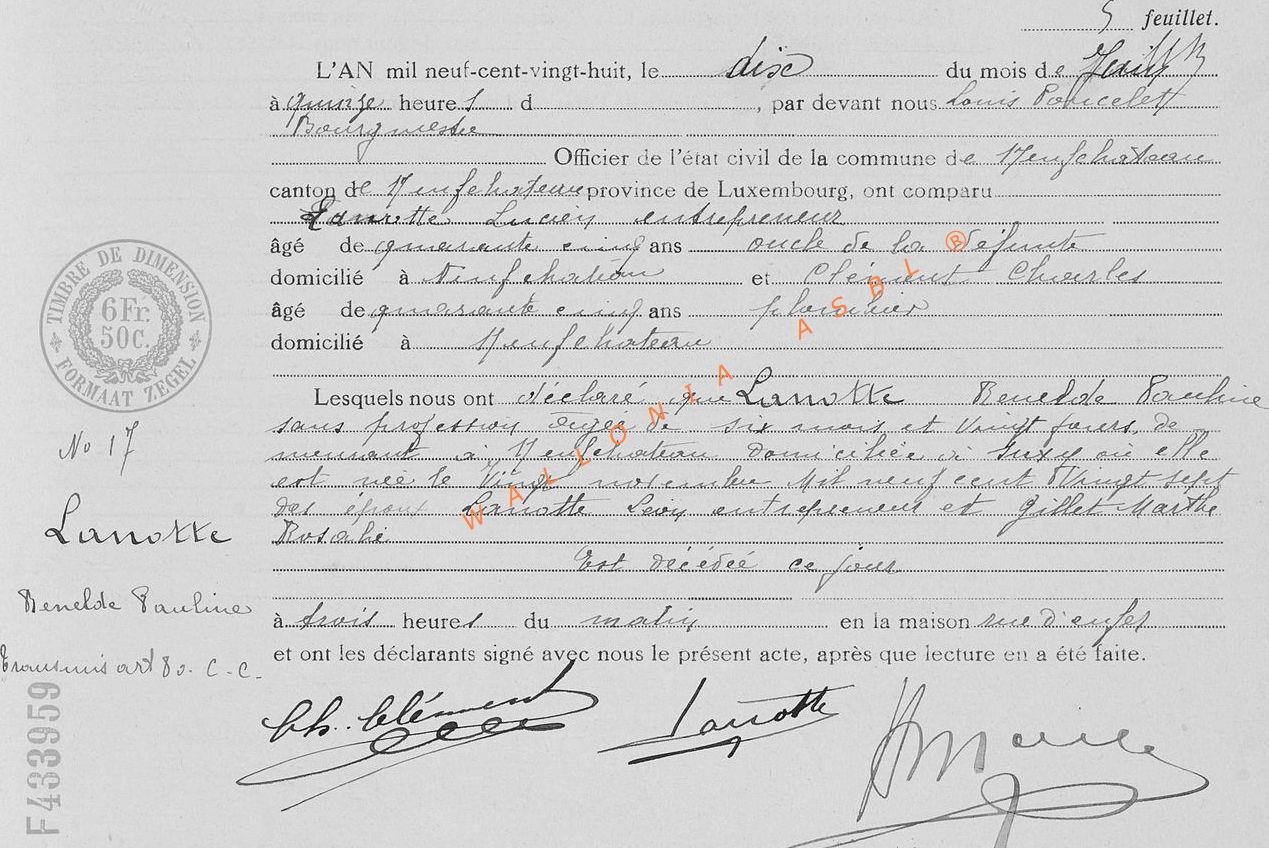 5 feuillet.
L'AN mil neuf-cent-vingt-huit, le dix du mois de Juin
à quinze heures d , par devant nous Louis Poncelet
Bourgmestre
Officier de l'état civil de la commune de Neufchâteau
canton de Neufchateau province de Luxembourg, ont comparu
Lanotte Lucien entrepreneur
âgé de quarante cinq ans oncle de la défunte
domicilié à Neufchateau et Clément Charles
âgé de quarante cinq ans plombier
domicilié à Neufchateau
Lesquels nous ont déclaré que Lanotte Renelde Pauline
sans profession agée de six mois et vingt jours, de
meurant à Neufchateau domiciliée à Juxy où elle
est née le Vingt novembre Mil neuf cent Vingt sept
des époux Lanotte Léon entrepreneur et Gillet Marthe
Rosalie
Est décédée ce jour
à trois heures du matin en la maison rue d'
et ont les déclarants signé avec nous le présent acte, après que lecture en a été faite.
TIMBRE DE DIMENSION
6 Fr.
50 C.
FORMAAT ZEGEL
No 17
Lanotte
Renelde Pauline
Transmis art 80. C. C.
F433959
Ch. Clément
Lanotte
WALLONIA ASBL ®